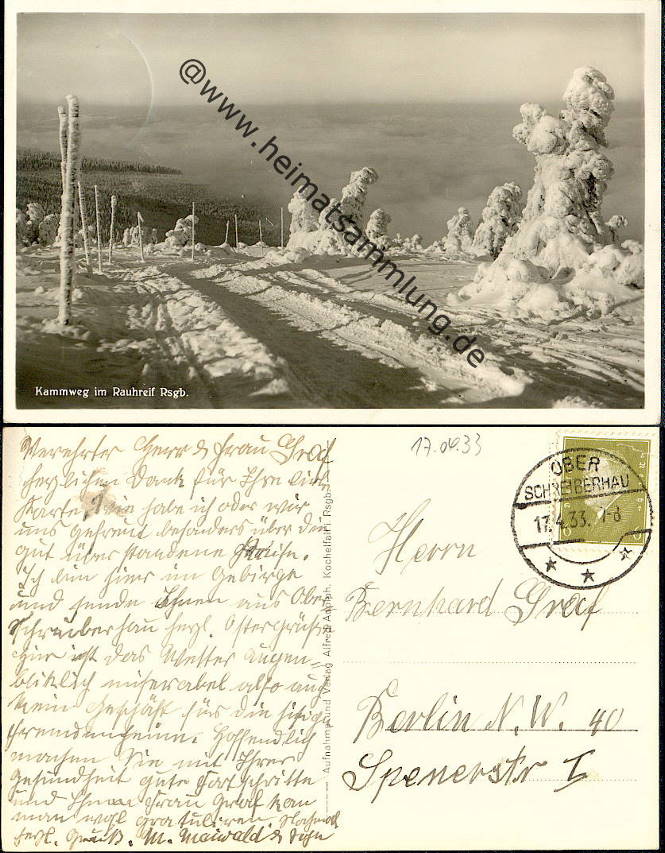 @www.heimatsammlung.de
Kammweg im Rauhreif Rsgb.
Verehrter Herr & Frau Gräf
herzlichen Dank für Ihre lieb
Karte. Wie habe ich oder wir
uns gefreut besonders über die
gut überstandene
Ich bin hier im Gebirge
und sende Ihnen aus Ober
schreiberhau herzl. Ostergrüße
hier ist das Wetter augen-
blicklich miserabel also auch
kein Geschäft für die hiesigen
Fremdenheime. Hoffendlich
machen Sie mit Ihrer
Gesundheit gute Fortschritte
und Ihnen Frau Gräf kan
man wohl gratuliren.
herzl. Gruß. M. Maiwald &
Aufnahme und Verlag Alfred Kochelfall i. Rsgb.
17.04.33
OBER
SCHREIBERHAU
17.4.33.
Herrn
Bernhard Gräf
Berlin N.W. 40
Spenerstr I